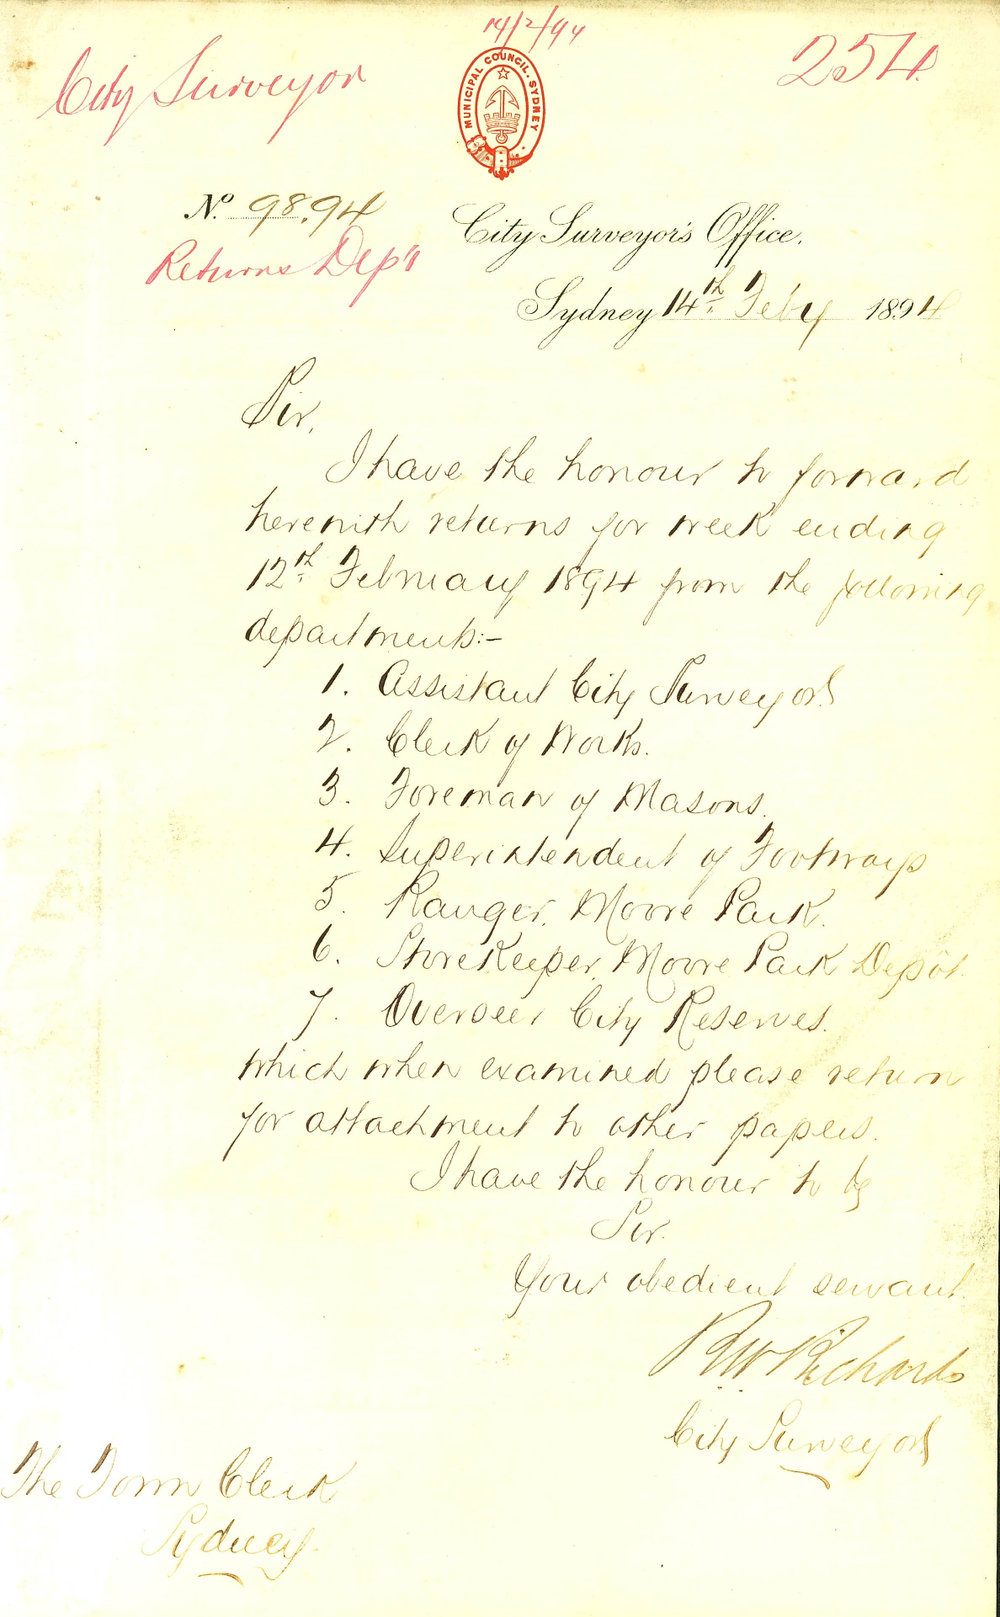 14/2/94
City Surveyor
254
MUNICIPAL COUNCIL. SYDNEY
No. 98.94
City Surveyor's Office.
Returns Dep't
Sydney 14th Feby 1894
Sir,
I have the honour to forward
herewith returns for week ending
12th February 1894 from the following
departments:-
1. Assistant City Surveyor
2. Clerk of Works.
3. Foreman of Masons.
4. Superintendent of Footways
5. Ranger, Moore Park.
6. Storekeeper, Moore Park Depôt.
7. Overseer City Reserves.
which when examined please return
for attachment to other papers.
I have the honour to be
Sir.
Your obedient servant.
R W Richards
City Surveyor
The Town Clerk
Sydney.